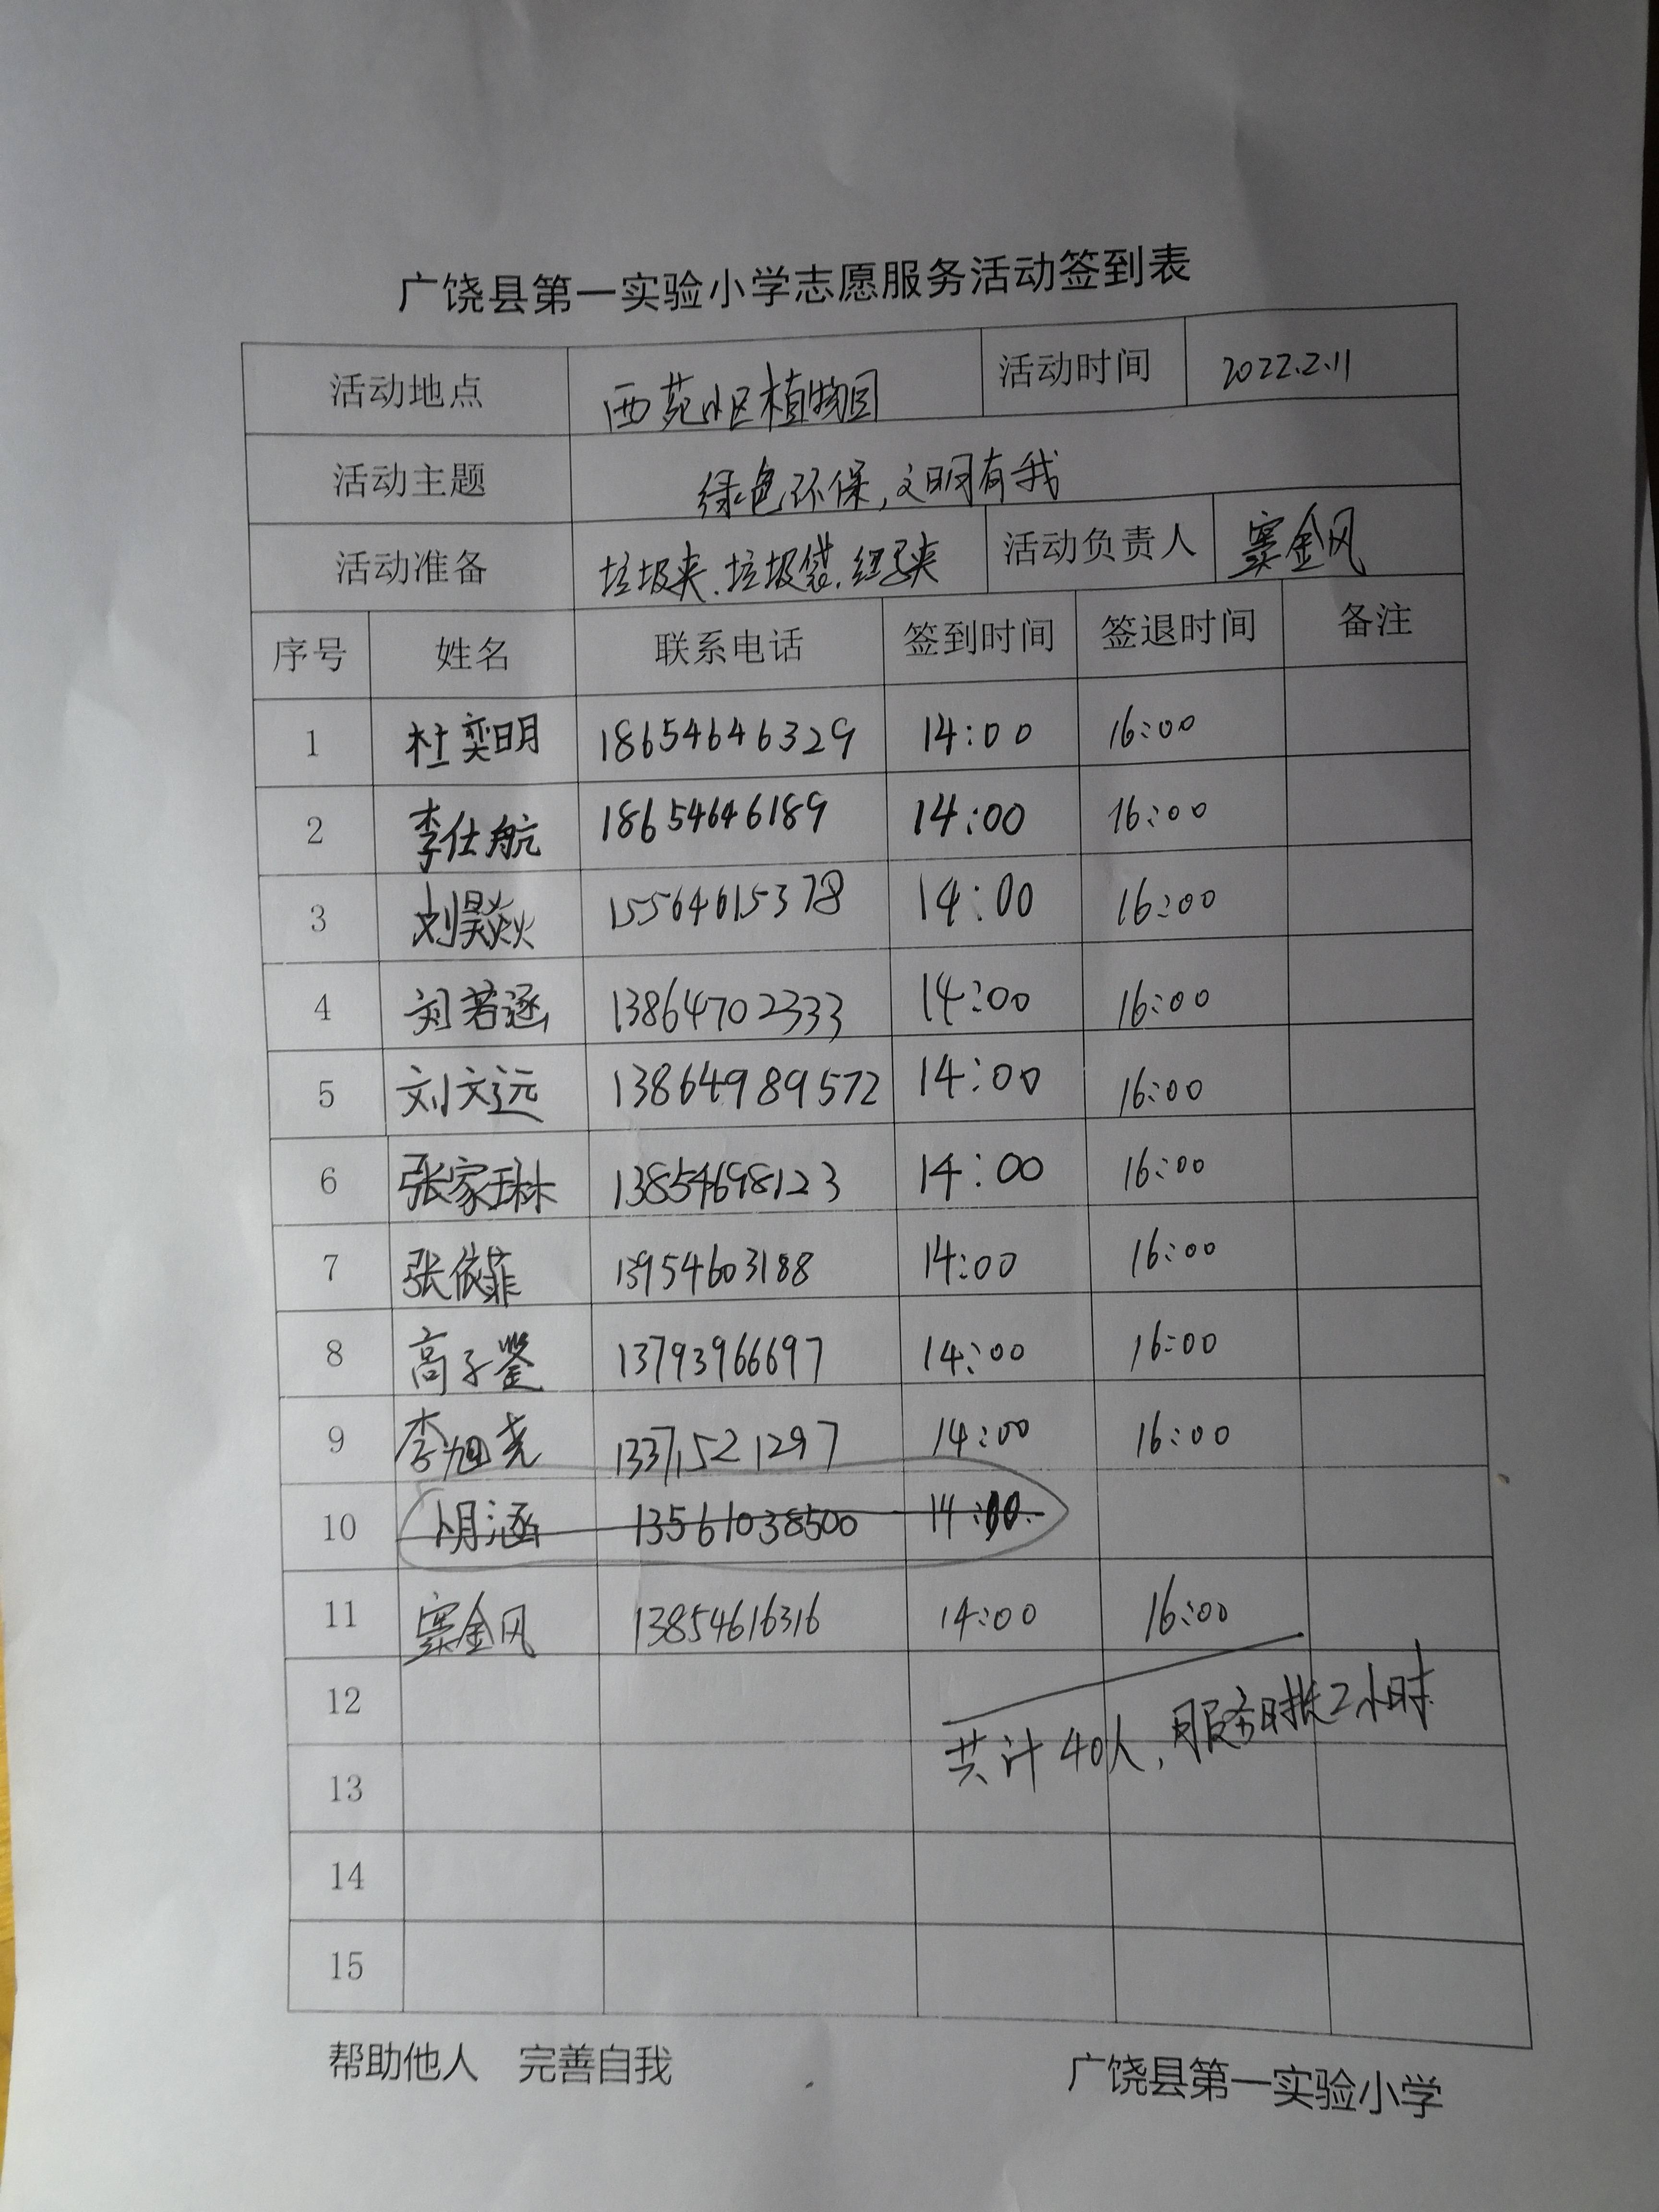 广饶县第一实验小学志愿服务活动签到表
活动地点 西苑小区植物园 活动时间 2022.2.11
活动主题 绿色环保,文明有我
活动准备 垃圾夹.垃圾袋. 活动负责人 窦金凤
序号 姓名 联系电话 签到时间 签退时间 备注
1 杜奕明 18654646329 14:00 16:00
2 李仕航 18654646189 14:00 16:00
3 刘昊焱 15564615378 14:00 16:00
4 刘若涵 13864702333 14:00 16:00
5 刘文远 13864989572 14:00 16:00
6 张家琳 13854698123 14:00 16:00
7 张依菲 13954603188 14:00 16:00
8 高子鉴 13793966697 14:00 16:00
9 李旭尧 13371521297 14:00 16:00
10 明涵 13561038500 14:00
11 窦金凤 13854616316 14:00 16:00
12
共计40人,服务时长2小时
13
14
15
帮助他人 完善自我 广饶县第一实验小学